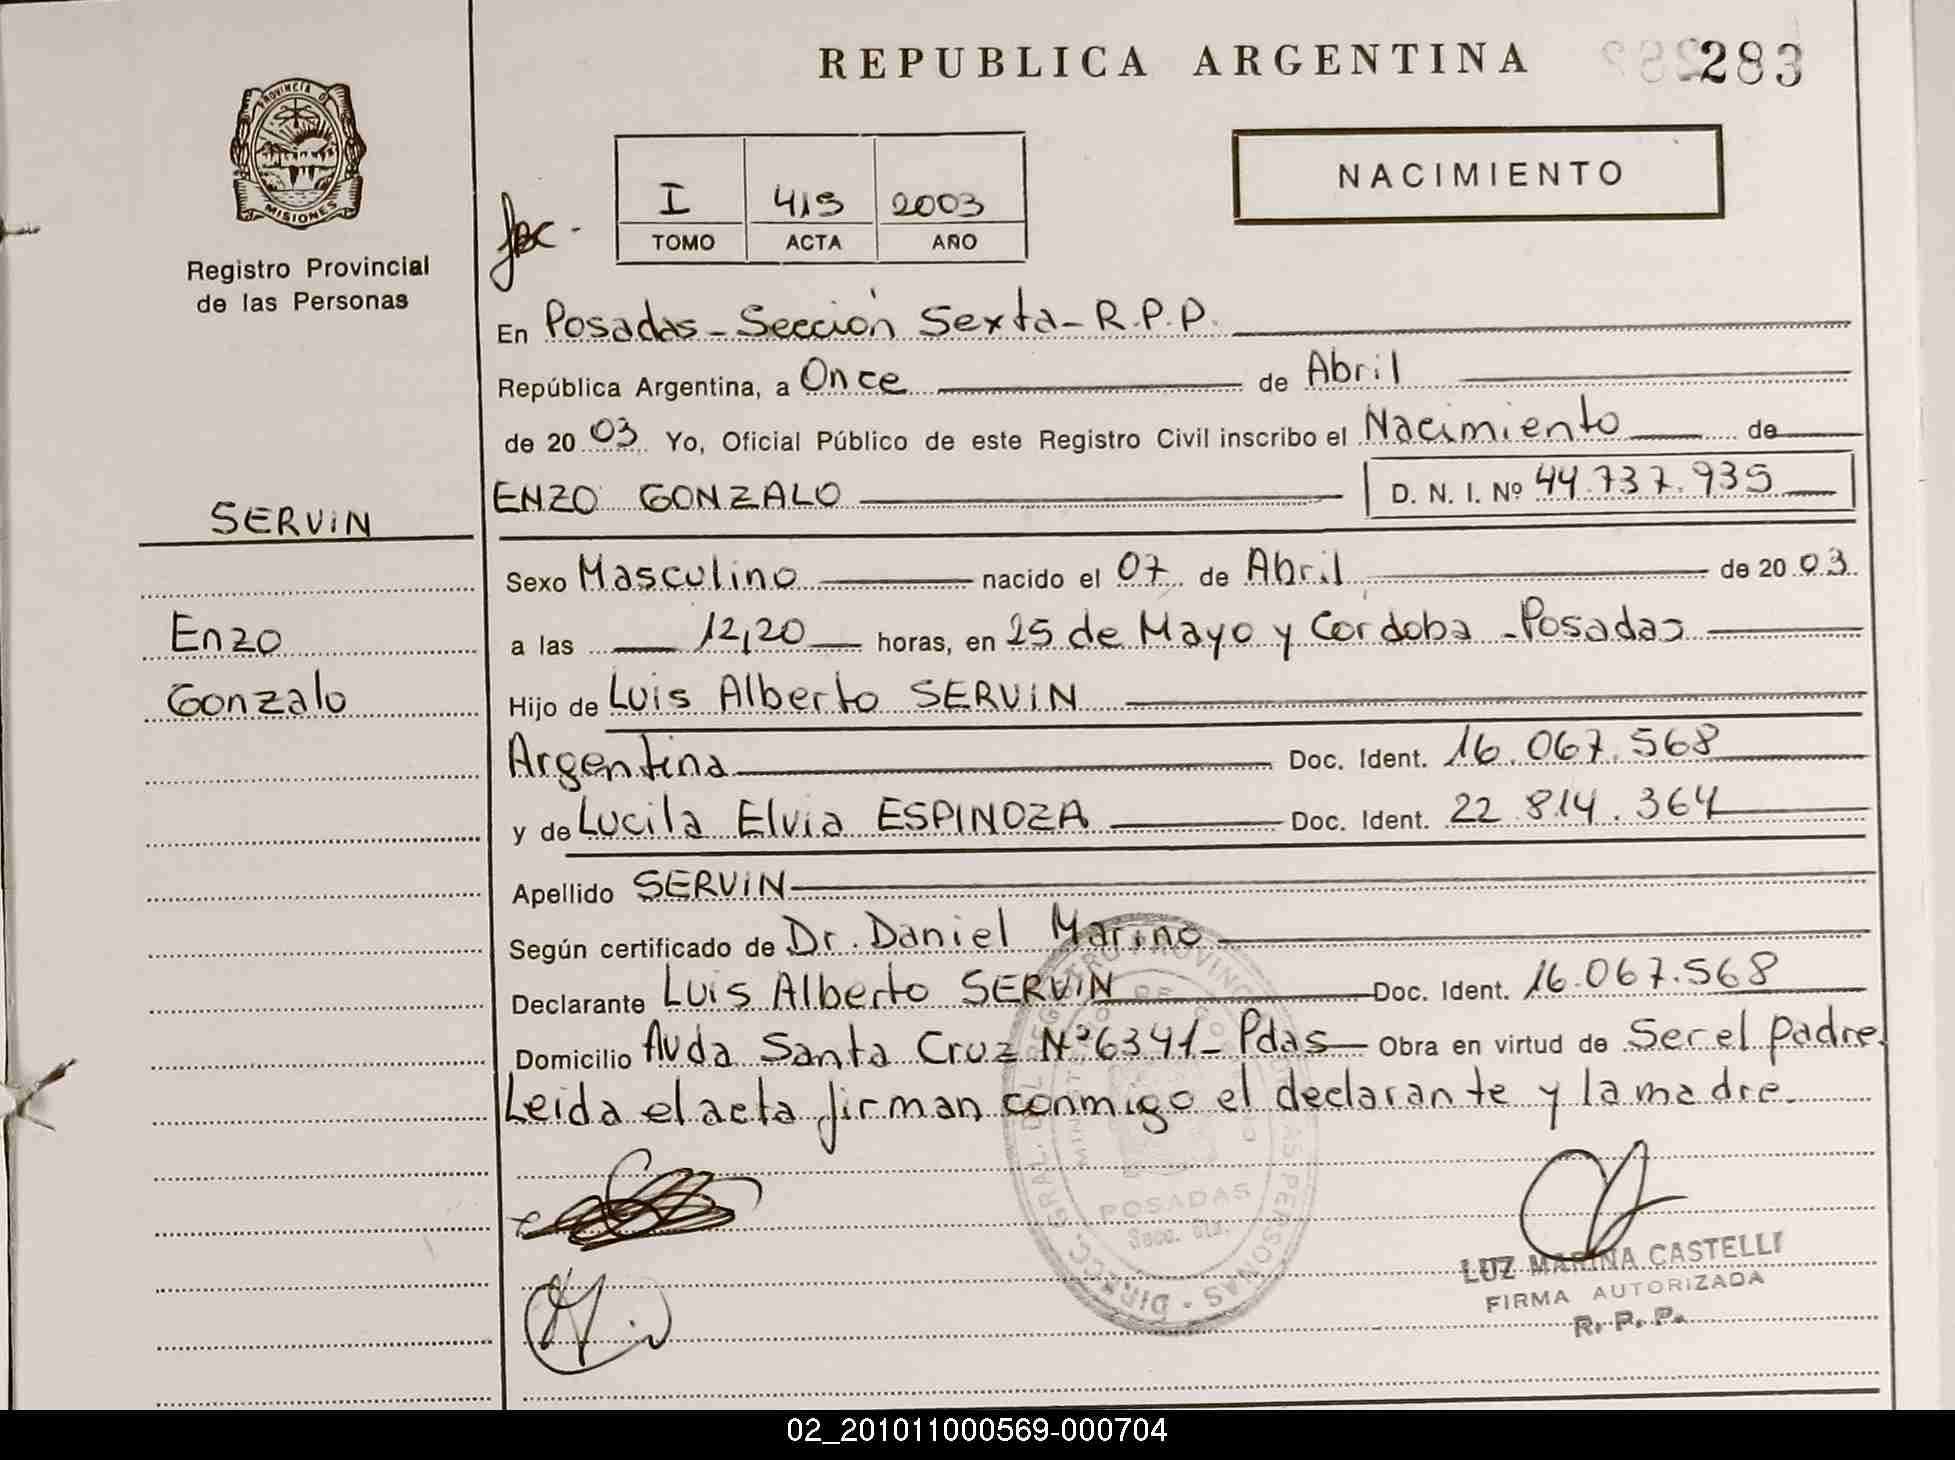 REPUBLICA ARGENTINA
283
PROVINCIA DE
MISIONES
Registro Provincial
de las Personas
NACIMIENTO
I 415 2003
TOMO ACTA AÑO
En Posadas - Sección Sexta - R.P.P.
República Argentina, a Once de Abril
de 20 03. Yo, Oficial Público de este Registro Civil inscribo el Nacimiento de
ENZO GONZALO D. N. I. Nº 44.737.935
SERVIN
Enzo
Gonzalo
Sexo Masculino nacido el 07 de Abril de 20 03.
a las 12,20 horas, en 25 de Mayo y Cordoba - Posadas
Hijo de Luis Alberto SERVIN
Argentina Doc. Ident. 16.067.568
y de Lucila Elvia ESPINOZA Doc. Ident. 22.814.364
Apellido SERVIN
Según certificado de Dr. Daniel Marino
Declarante Luis Alberto SERVIN Doc. Ident. 16.067.568
Domicilio Avda Santa Cruz Nº 6341 - Pdas Obra en virtud de Ser el padre
Leida el acta firman conmigo el declarante y la madre.
POSADAS
Secc. 6ta.
LUZ MARINA CASTELLI
FIRMA AUTORIZADA
R. P. P.
02_201011000569-000704